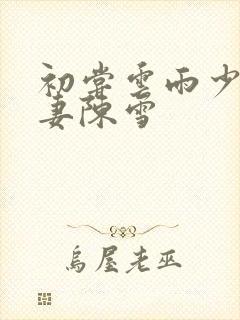 初尝雲雨少
妻陳雪
烏屋老巫